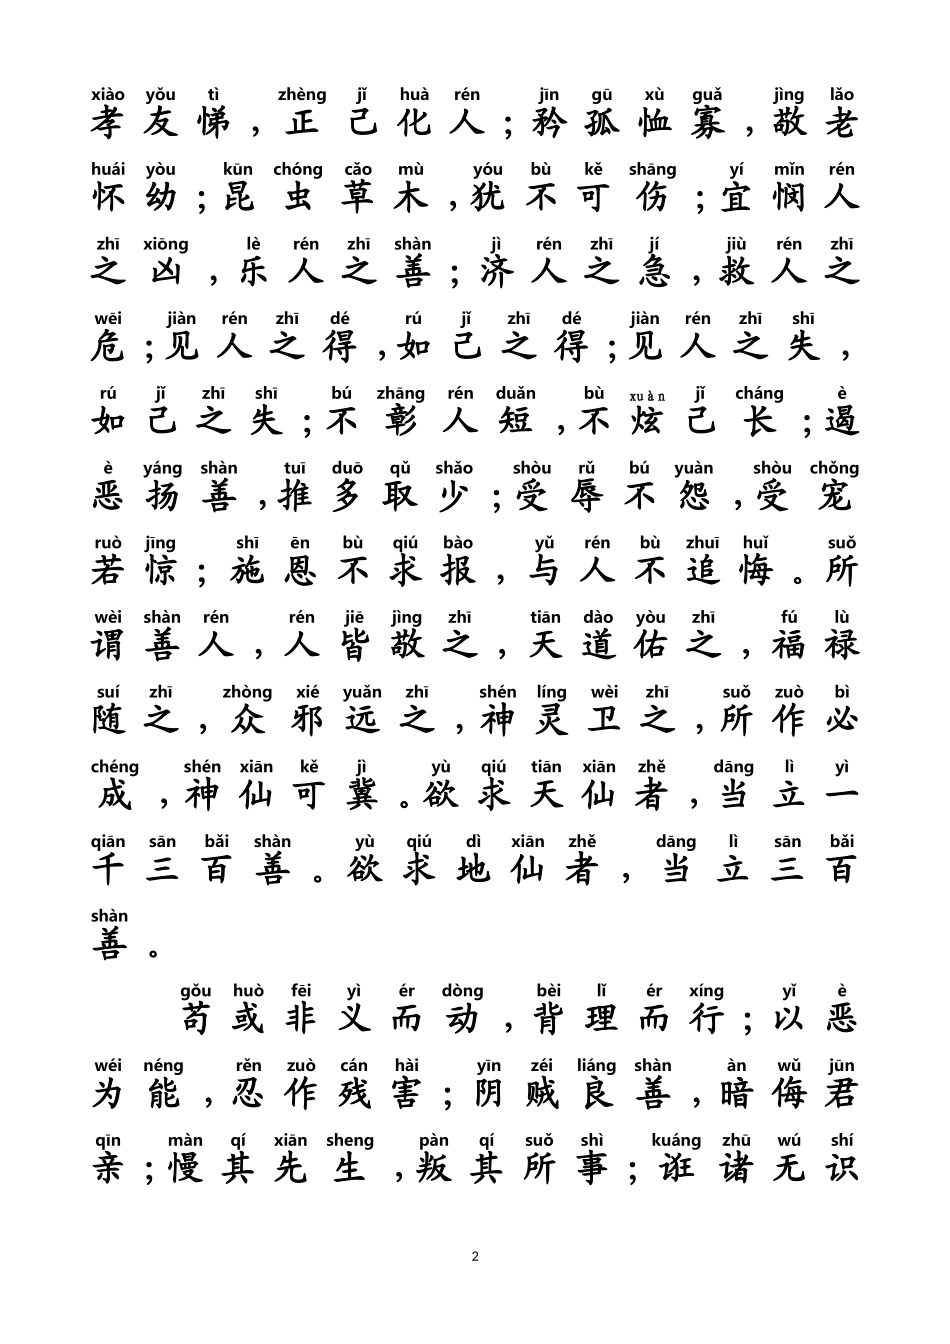 xiào yǒu tì zhèng jǐ huà rén jīn gū xù guǎ jìng lǎo
孝友悌，正己化人；矜孤恤寡，敬老
huái yòu kūn chóng cǎo mù yóu bù kě shāng yí mǐn rén
怀幼；昆虫草木，犹不可伤；宜悯人
zhī xiōng lè rén zhī shàn jì rén zhī jí jiù rén zhī
之凶，乐人之善；济人之急，救人之
wēi jiàn rén zhī dé rú jǐ zhī dé jiàn rén zhī shī
危；见人之得，如己之得；见人之失，
rú jǐ zhī shī bú zhāng rén duǎn bù xuàn jǐ cháng è
如己之失；不彰人短，不炫己长；遏
è yáng shàn tuī duō qǔ shǎo shòu rǔ bú yuàn shòu chǒng
恶扬善，推多取少；受辱不怨，受宠
ruò jīng shī ēn bù qiú bào yǔ rén bù zhuī huǐ suǒ
若惊；施恩不求报，与人不追悔。所
wèi shàn rén rén jiē jìng zhī tiān dào yòu zhī fú lù
谓善人，人皆敬之，天道佑之，福禄
suí zhī zhòng xié yuǎn zhī shén líng wèi zhī suǒ zuò bì
随之，众邪远之，神灵卫之，所作必
chéng shén xiān kě jì yù qiú tiān xiān zhě dāng lì yì
成，神仙可冀。欲求天仙者，当立一
qiān sān bǎi shàn yù qiú dì xiān zhě dāng lì sān bǎi
千三百善。欲求地仙者，当立三百
shàn
善。
gǒu huò fēi yì ér dòng bèi lǐ ér xíng yǐ è
苟或非义而动，背理而行；以恶
wéi néng rěn zuò cán hài yīn zéi liáng shàn àn wǔ jūn
为能，忍作残害；阴贼良善，暗侮君
qīn màn qí xiān sheng pàn qí suǒ shì kuáng zhū wú shí
亲；慢其先生，叛其所事；诳诸无识
2